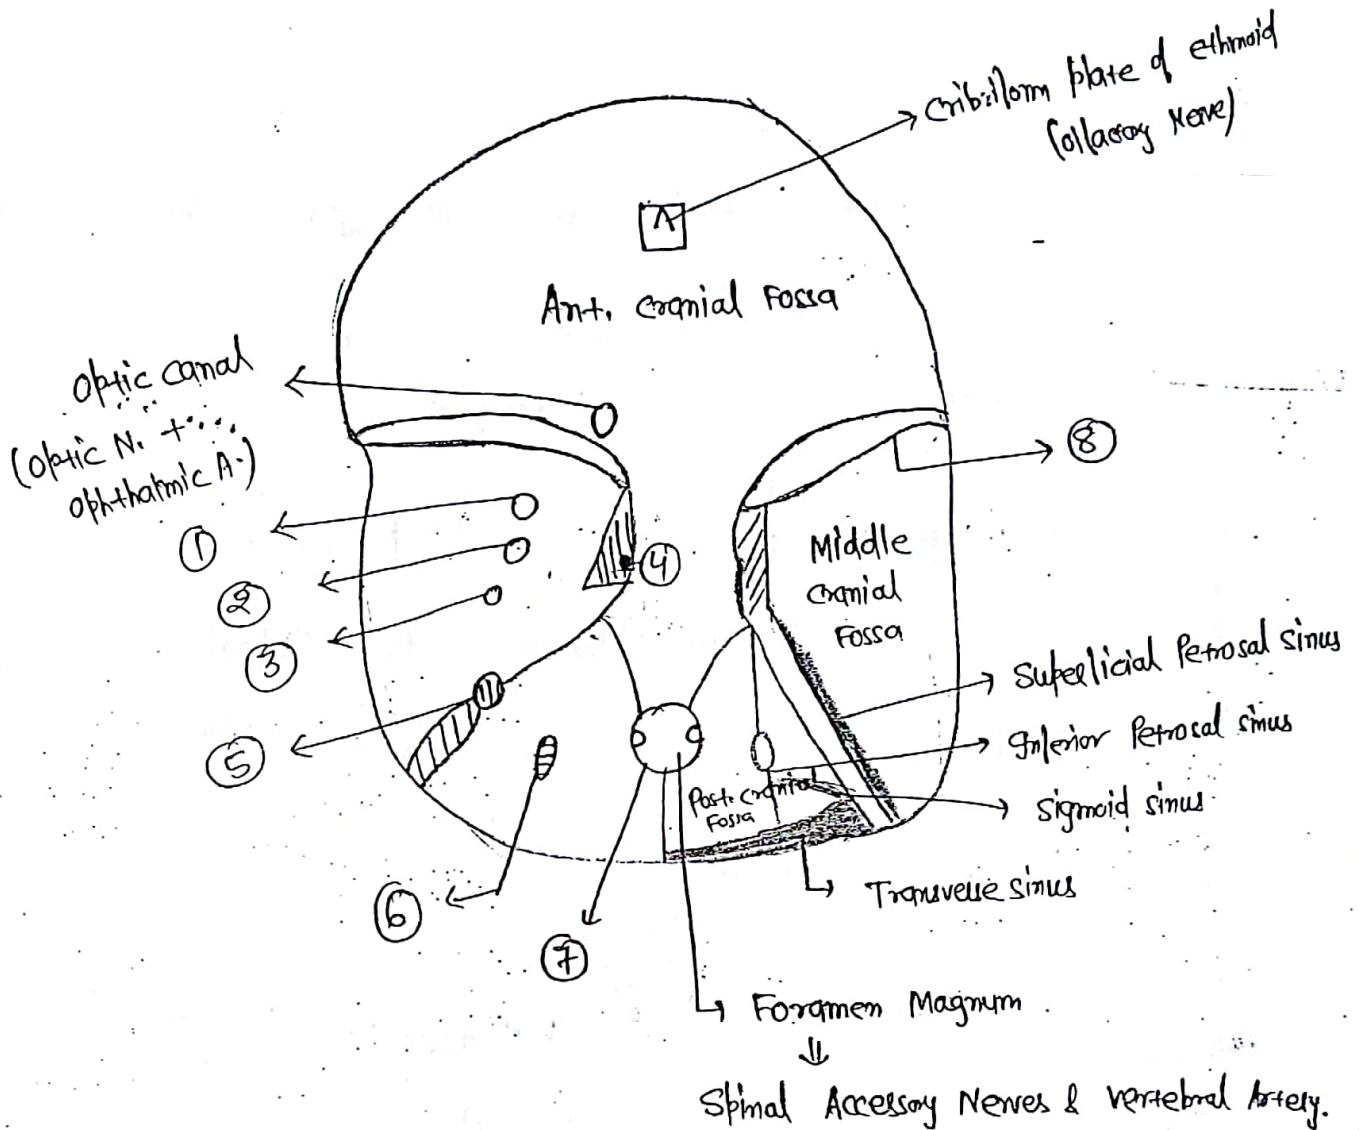 Cribriform plate of ethmoid
(olfactory Nerve)
Ant. cranial Fossa
optic canal
(optic N. +
ophthalmic A.)
1
2
3
4
5
6
7
8
Middle
cranial
Fossa
Superficial Petrosal sinus
Inferior Petrosal sinus
Sigmoid sinus
Post. cranial
Fossa
Transverse sinus
Foramen Magnum
Spinal Accessory Nerves & vertebral Artery.